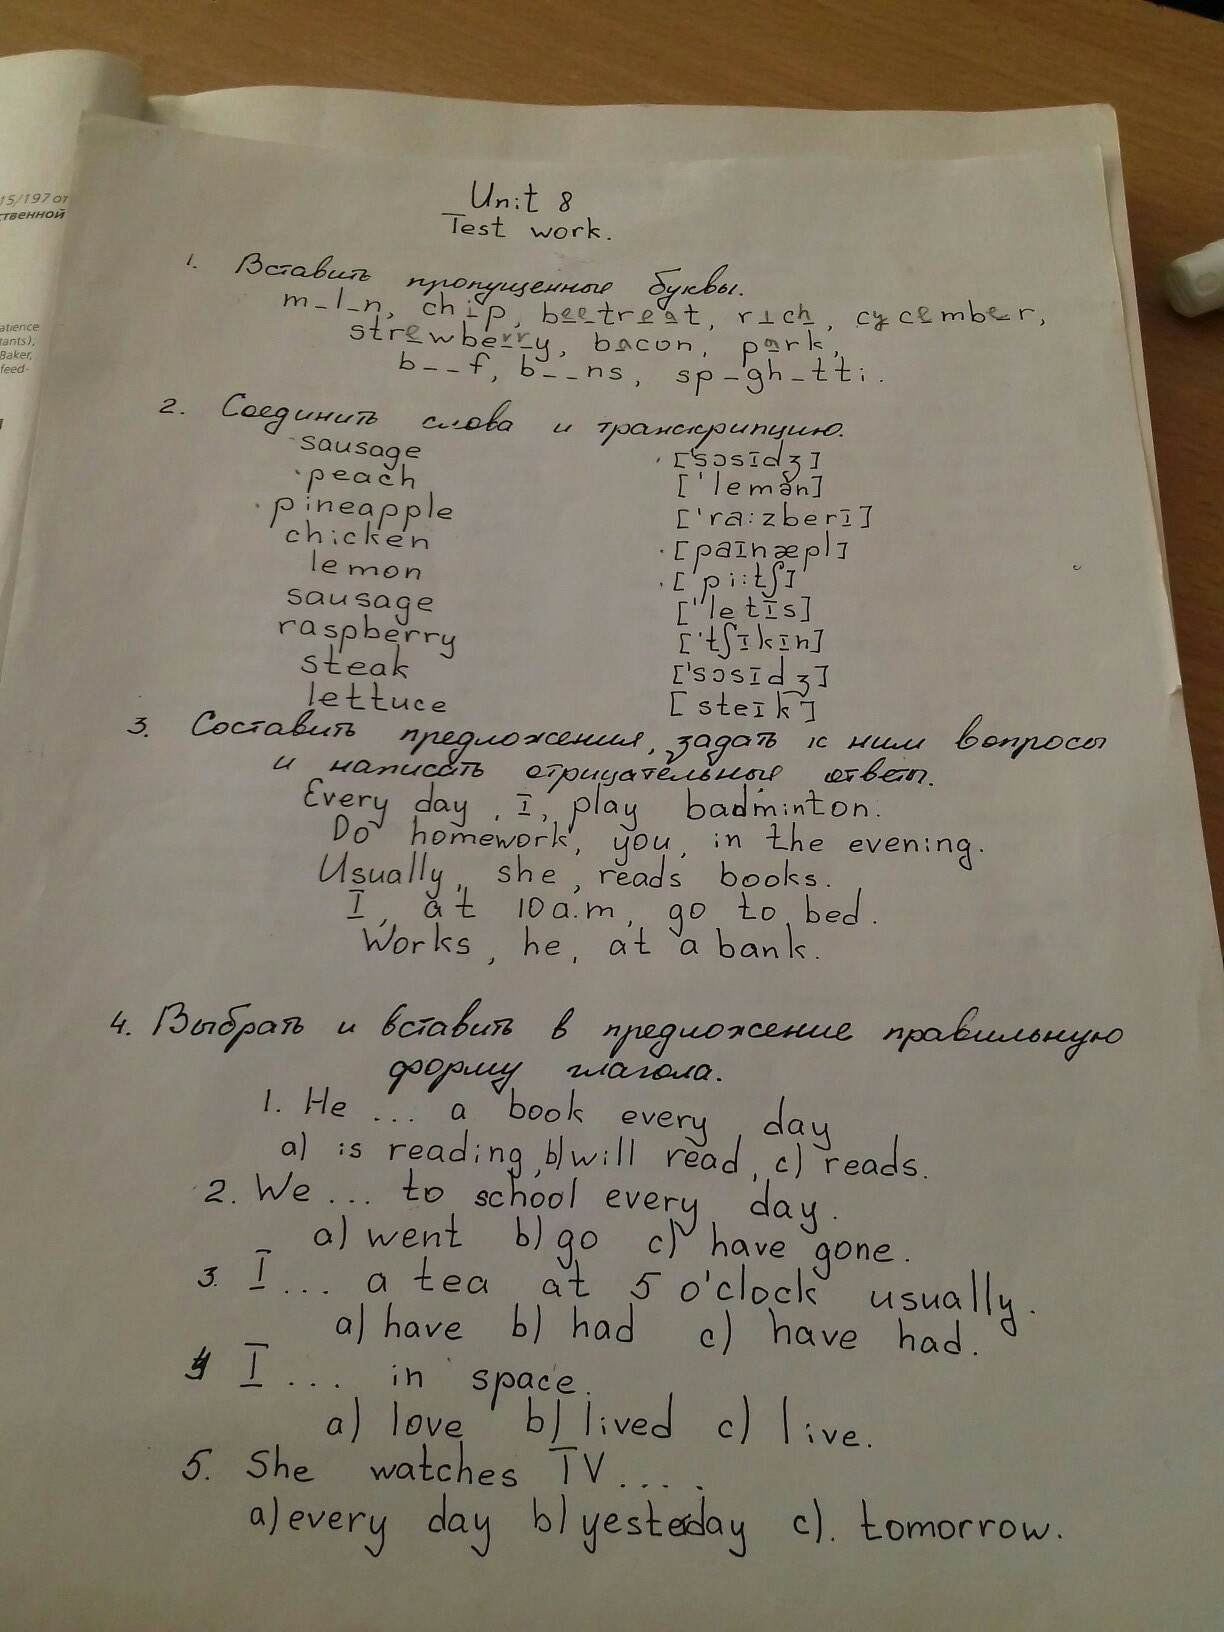 15/197 от
ственной
atience
tants);
Baker,
feed-
Unit 8
Test work.
1. Вставить пропущенные буквы.
m_l_n, chip, beetreat, rich, cycember,
strewberry, bacon, park,
b__f, b__ns, sp_gh_tti.
2. Соединить слова и транскрипцию.
sausage ['sɔsIdʒ]
peach ['lemən]
pineapple ['ra:zberI]
chicken [paInæpl]
lemon [pi:tʃ]
sausage ['letIs]
raspberry ['tʃIkIn]
steak ['sɔsIdʒ]
lettuce [steIk]
3. Составить предложения, задать к ним вопросы
и написать отрицательные ответы.
Every day, I, play badminton.
Do homework, you, in the evening.
Usually, she, reads books.
I, at 10 a.m, go to bed.
Works, he, at a bank.
4. Выбрать и вставить в предложение правильную
форму глагола.
1. He ... a book every day
a) is reading, b) will read, c) reads.
2. We ... to school every day.
a) went b) go c) have gone.
3. I ... a tea at 5 o'clock usually.
a) have b) had c) have had.
4 I ... in space.
a) love b) lived c) live.
5. She watches TV ....
a) every day b) yesterday c). tomorrow.